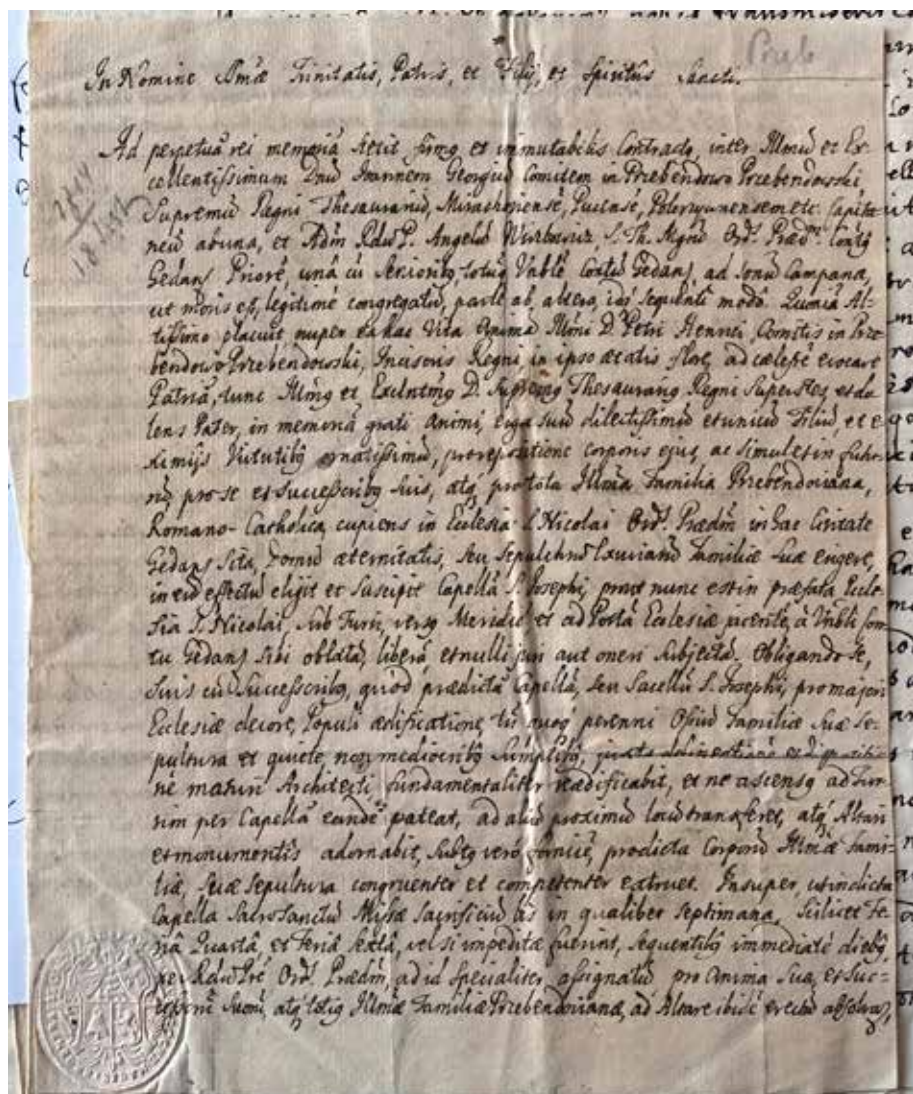 In Nomine SSmae Trinitatis, Patris, et Filij, et Spiritus Sancti.
Ad perpetuā rei memoriā stetit firmg et immutabilis Contractg inter Illmū et Ex-
cellentissimum Dnū Joannem Georgiū Comitem in Przebendowo Przebendowski
Supremū Regni Thesaurariū, Mirachoviensē, Pucensē, etc. Capita-
neū ab una, et Adm Rdū P. Angelū S. Th. Mgrū Ordis Praedm Contg
Gedans Priorē, unā cū Seniioribg totig Vnblē Contg Gedans, ad sonū Campanae,
ut moris est, legitimē congregatū, parte ab altera, sequenti modō. Quoniā Al-
tissimo placuit nuper ex hac Vita Animā Illmi D. Petri Henrici Comitis in Prze-
bendowo Przebendowski, Incisoris Regni in ipso aetatis flore, ad caelestē evocare
Patriā, tunc Illmg et Exlntmg D. Supremg Thesaurarig Regni Superstes, et do-
lens Pater, in memoriā grati animi, erga suū dilectissimū et unicū Filiū, et e-
ximijs Virtutibg ornatissimū, pro repositione corporis ejus, ac simul et in futu-
rū pro se et Successoribg suis, atg pro tota Illma Familia Przebendoviana,
Romano-Catholica, cupiens in Ecclesia S. Nicolai Ord. Praedm in hac Civitate
Gedans sita, Domū aeternitatis, seu Sepulchrū Familiae suae erigere,
in eū effectū eligit et suscipit Capellā S. Josephi, prout nunc est in praefata Eccle-
sia S. Nicolai, sub Turri, versg Meridiē et ad Portā Ecclesiae jacentē, à Vnbli Con-
tu Gedans sibi oblatā, liberā et nulli juri aut oneri subjectā. Obligando se,
suis cū Successoribg, quòd praedictā Capellā, seu Sacellū S. Josephi, pro majori
Ecclesiae decore, Populi aedificatione, tū quog perenni Ossiū Familiae suae se-
pultura et quiete, non mediocribg sumptibg, juxta delineationē et dispositio-
nē maturi Architecti fundamentaliter reedificabit, et ne ascensg ad Tur-
rim per Capellā eandē pateat, ad aliū proximū locū transferet, atg Altari
et monumentis adornabit, subtg verò fornicē, pro dicta Corporū Illmae Fami-
liae, suae sepultura congruenter et competenter extruet. Insuper, ut in dicta
Capella Sacrosanctū Missae Sacrificiū bis in qualibet septimana, scilicet Fe-
riâ Quartâ, et Feriâ Sextâ, vel si impeditae fuerint, sequentibg immediatè diebg
per Rdū Prē Ord. Praedm, ad id specialiter assignatū pro Anima sua, et Suc-
cessorū suorū, atg totig Illmae Familiae Przebendovianae, ad Altare ibidē erectū absolva-